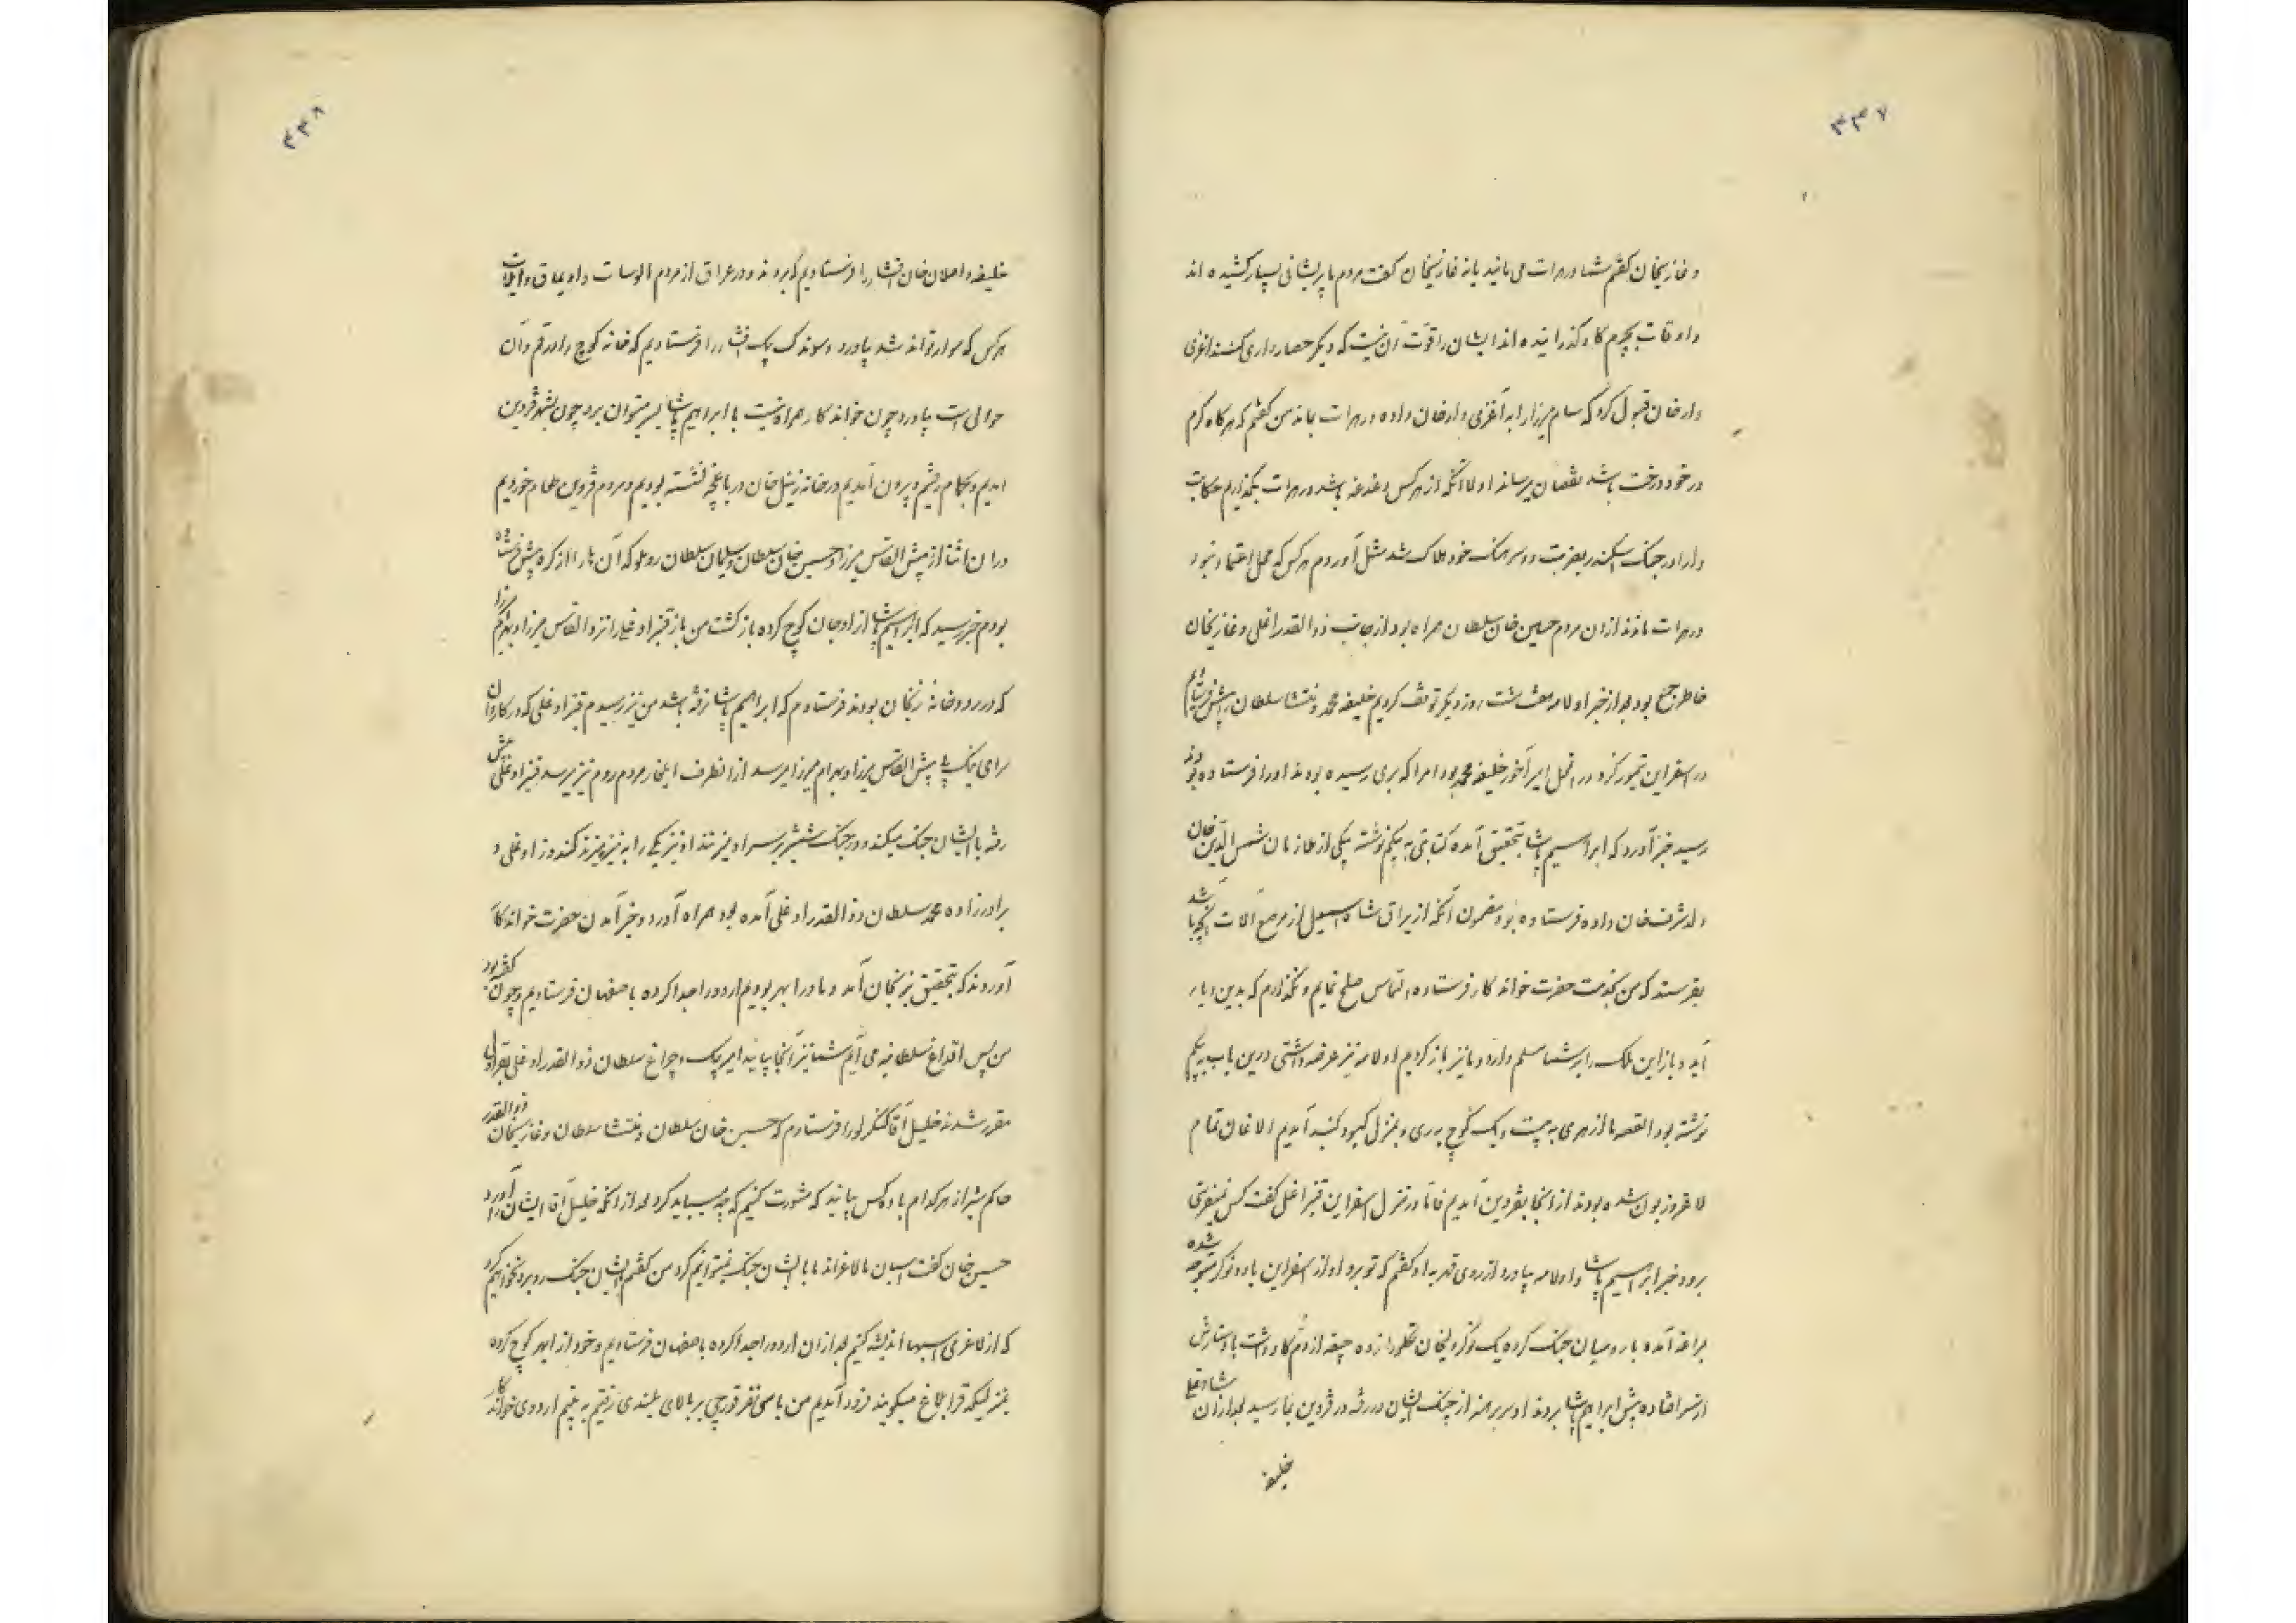 ۳۳۷
و غازیخان گفتم شما در هرات می‌مانید یا نه غازیخان گفت مردم ما پریشانی بسیار کشیده اند
و اوقات بچرم گاو گذرانیده اند ایشان را قوت آن نیست که دیگر حصار داری کنند اغزی
وار خان قبول کرد که سام میرزا را به آغزی وار خان داده در هرات بماند من گفتم که هرگاه کرم
در خود درخت باشد نقصان میرساند اولا آنکه از هر کس دغدغه باشد در هرات نگذارم
را در جنگ اسکندر بضربت دو سرهنگ خود هلاک شد مثل آوردم هر کس که محل اعتماد نبود
در هرات ماندند ازان مردم حسین خان سلطان همراه بود از جانب ذوالقدر اغلی و غازیخان
خاطر جمع بود بعد از خبر اولامه هفت هشت روز دیگر توقف کردیم خلیفه محمد و منتشا سلطان پیش فرستادم
در اسفراین امیر آخور خلیفه محمد بود امرا که بری رسیده بودند او را فرستاده بودند
رسید خبر آورد که ابراهیم پاشا بتحقیق آمده کتابتی به بیکم نوشته یکی از ملازمان شمس الدین خان
ولد شرف خان داده فرستاده بود مضمون آنکه از یراق شاه اسمعیل از مرصع آلات آنچه باشد
بفرستد که من بخدمت حضرت خواندگار فرستاده التماس صلح نمایم و نگذارم که بدین دیار
آید و باز این ملک را بر شما مسلم دارد و ما نیز باز کردیم اولامه نیز عرضه داشتی درین باب به بیکم
نوشته بود القصه ما از هری به بیست و یک کوچ به ری و بمنزل کبود گنبد آمدیم الاغان تمام
لاغر و زبون شده بودند از انجا بقزوین آمدیم فاما در منزل اسفراین قنبر اغلی گفت کس نمیفرستی
برود خبر ابراهیم پاشا و اولامه بیاورد از روی قدر به او گفتم که تو برو او از اسفراین با ده نوکر متوجه شده
مراغه آمده با رومیان جنگ کرده یک نوکر
از سر افتاده پیش ابراهیم پاشا بردند او سر برهنه از جنگ ایشان در رفته در قزوین بما رسید بعد ازان
خلیفه
۳۳۸
خلیفه و اصلان خان افشار را فرستادیم که بروند و در عراق از مردم الوسات و اویماق و ایلات
هر کس که سوار تواند شد بیاورد و سوندک بیک افشار را فرستادیم که خانه کوچ را در قم و آن
حوالی است بیاورد چون خواندکار همراه نیست با ابراهیم پاشا بسر میتوان برد چون بشهر قزوین
آمدیم و بحمام رفتیم و بیرون آمدیم در خانه زینل خان در باغچه نشسته بودیم و مردم قزوین طعام خوردیم
در ان اثنا از پیش القاس میرزا و حسین خان سلطان و سلیمان سلطان روملو که آن بار از کره پیش فرستاده
بودم خبر رسید که ابراهیم پاشا از اوجان کوچ کرده باز گشت من باز قنبر اوغلی را نزد القاس میرزا و بهرام میرزا
که در رودخانه زنجان بودند فرستادم که ابراهیم پاشا نرفته باشد من نیز رسیدم قنبر اوغلی که در کاروان
سرای نیک پی پیش القاس میرزا و بهرام میرزا میرسد از انطرف ایلغار مردم روم نیز میرسد قنبر اوغلی پیش
رفته با ایشان جنگ میکند و در جنگ شمشیر بر سر او میزنند او نیز یکی را به نیزه میزند
برادرزاده محمد سلطان ذو القدر اوغلی آمده بود همراه آورد و خبر آمدن حضرت خواندکار
آوردند که بتحقیق بزنجان آمد و ما در ابهر بودیم اردو را جدا کرده باصفهان فرستادیم و چون گفته بود
من پس اقداغ سلطانیه می آیم شما نیز آنجا بیائید امیر بیک و چراغ سلطان ذو القدر اوغلی بقراولی
مقرر شدند خلیل آقا کنکرلو را فرستادم که حسین خان سلطان و منتشا سلطان و غازیخان ذوالقدر
حاکم شیراز هر کدام با دو کس بیایند که مشورت کنیم که چه میباید کرد بعد از انکه خلیل آقا ایشان را آورد
حسین خان گفت اسبان ما لاغراند ما با ایشان جنگ نمیتوانیم کرد من گفتم با ایشان جنگ رو برو نخواهیم کرد
که از لاغری اسبها اندیشه کنیم بعد ازان اردو را جدا کرده باصفهان فرستادیم و خود از ابهر کوچ کرده
بمنزلیکه قرابلاغ میگویند فرود آمدیم من با سی نفر قورچی بر بالای بلندی رفتیم به بینم اردوی خواندکار